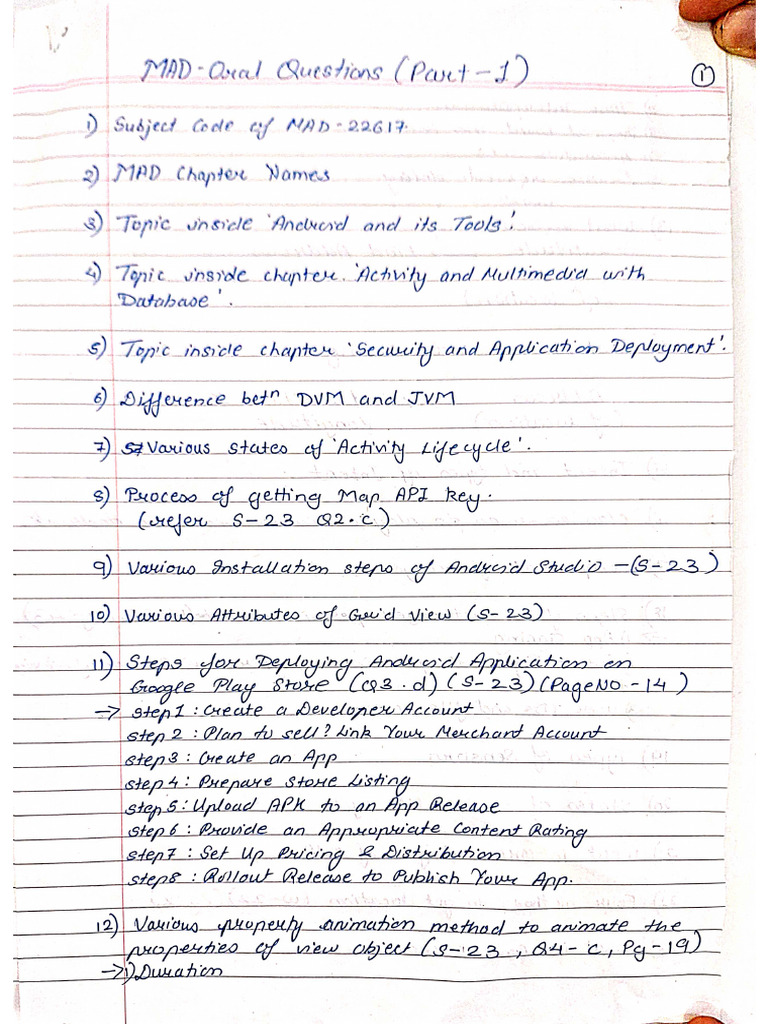 MAD-Oral Questions (Part-1)
1
1) Subject Code of MAD-22617.
2) MAD Chapter Names
3) Topic inside 'Android and its Tools'.
4) Topic inside chapter 'Activity and Multimedia with
Database'.
5) Topic inside chapter 'Security and Application Deployment'.
6) Difference betn DVM and JVM
7) Various states of 'Activity Lifecycle'.
8) Process of getting Map API key.
(refer S-23 Q2.c)
9) Various Installation steps of Android Studio -(S-23)
10) Various Attributes of Grid View (S-23)
11) Steps for Deploying Android Application on
Google Play Store (Q3.d) (S-23) (Page NO-14)
→ Step1 : Create a Developer Account
step 2 : Plan to sell? Link Your Merchant Account
step3 : Create an App
step 4 : Prepare Store Listing
step5 : Upload APK to an App Release
step 6 : Provide an Appropriate Content Rating
step7 : Set Up Pricing & Distribution
step8 : Rollout Release to Publish Your App.
12) Various property animation method to animate the
properties of view object (S-23, Q4-c, Pg-19)
→ 1) Duration